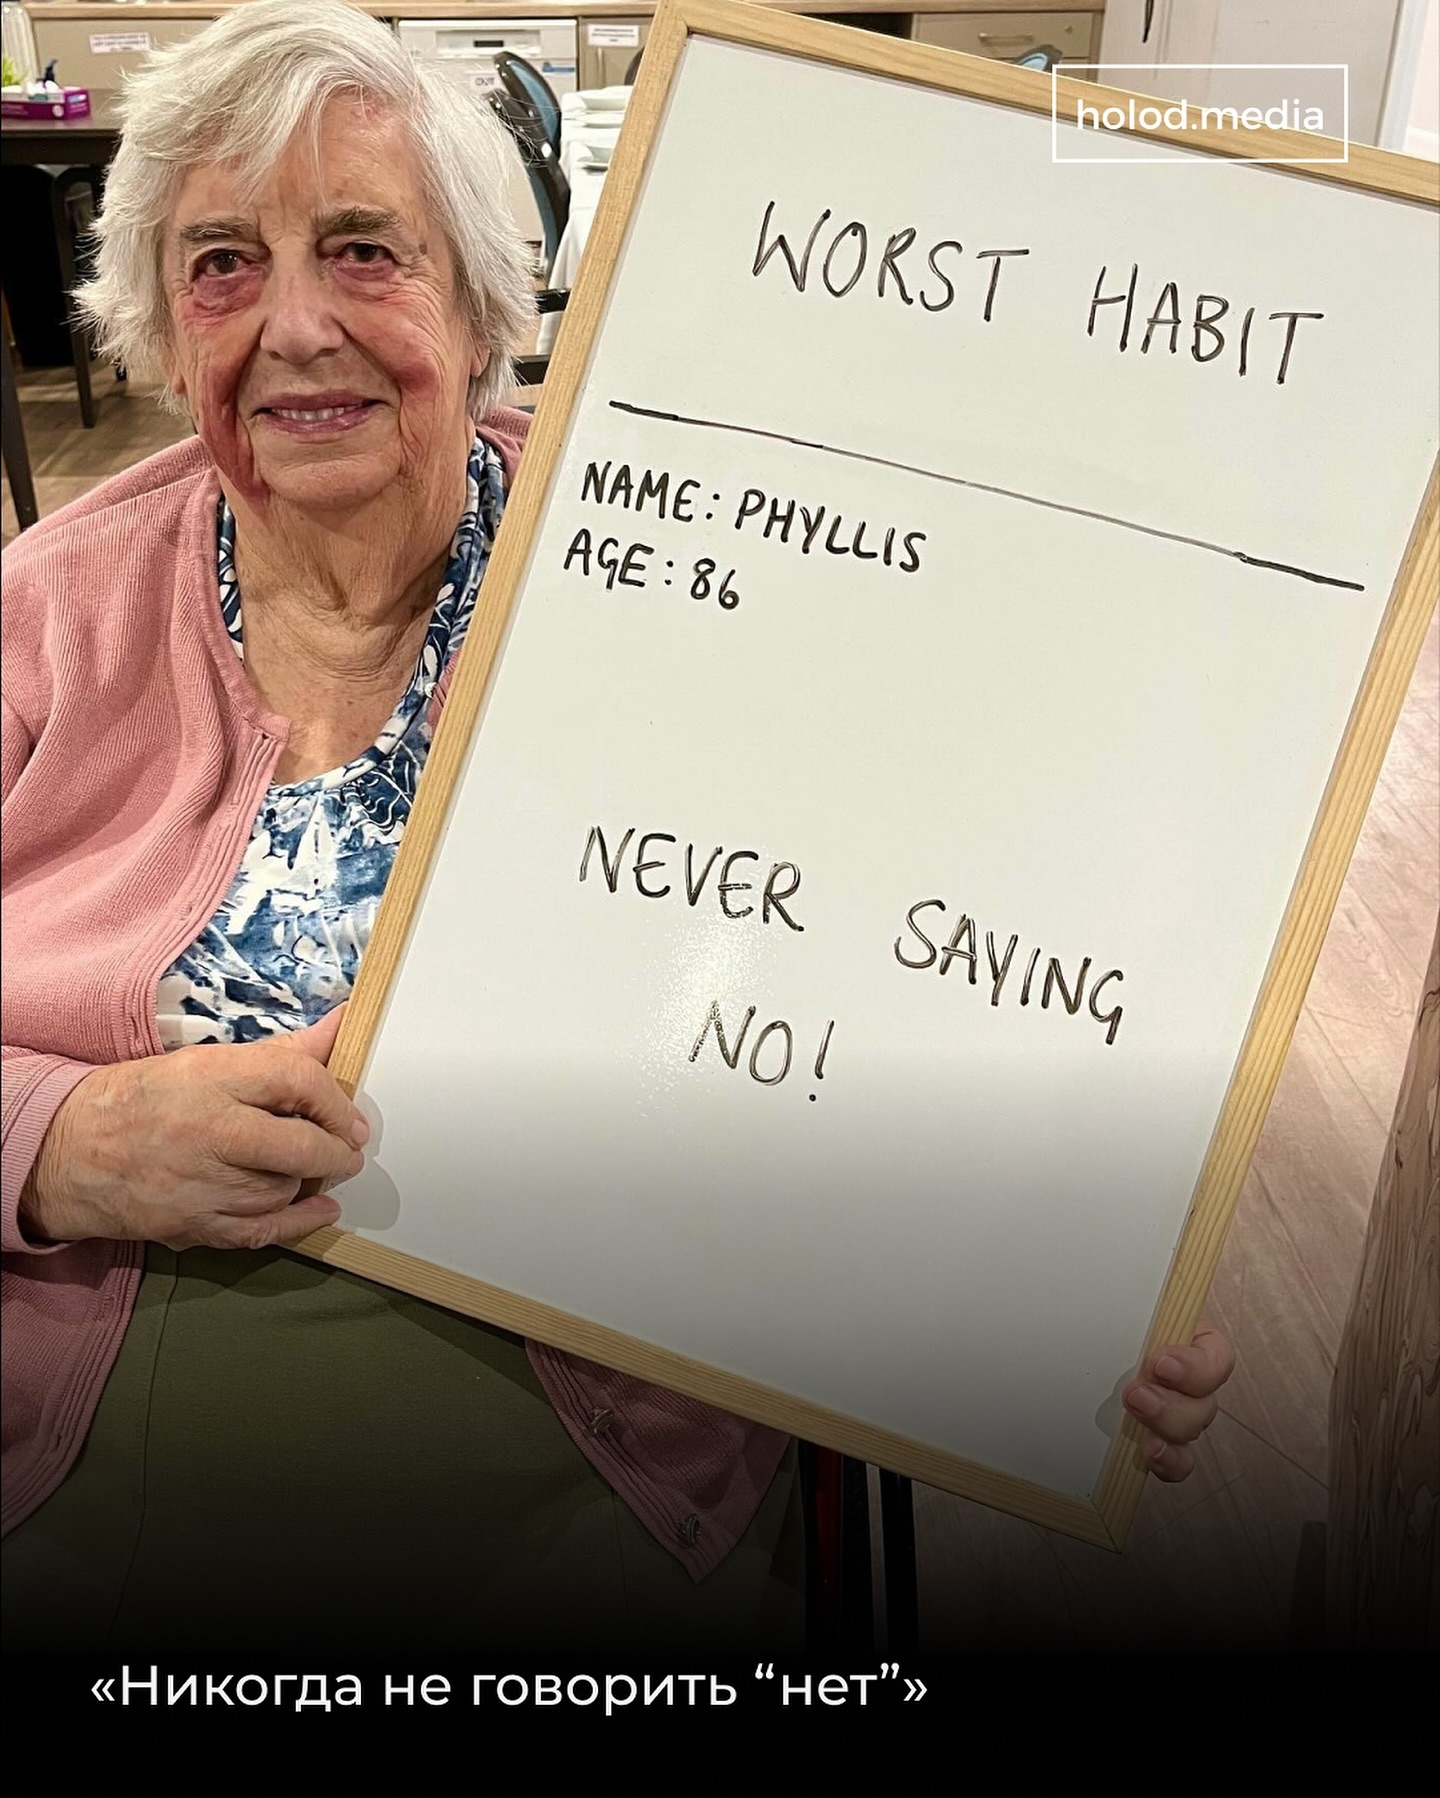 holod.media
WORST HABIT
NAME: PHYLLIS
AGE: 86
NEVER SAYING
NO!
«Никогда не говорить “нет”»